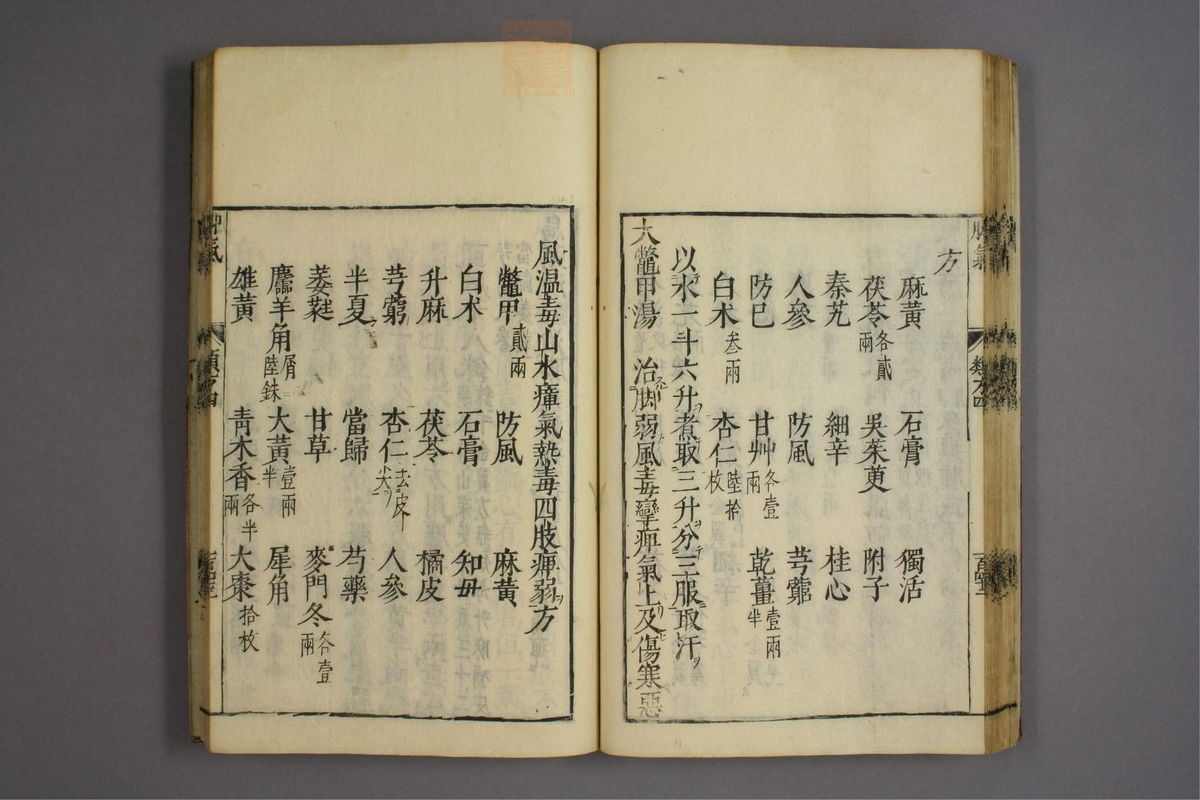 方
麻黃 石膏 獨活
茯苓各貳兩 吳茱萸 附子
秦艽 細辛 桂心
人參 防風 芎藭
防巳 甘艸各壹兩 乾薑壹兩半
白朮叁兩 杏仁陸拾枚
以水一斗六升煮取三升分三服取汗
大鼈甲湯 治脚弱風毒攣痺氣上及傷寒惡
風温毒山水瘴氣熱毒四肢痺弱方
鼈甲貳兩 防風 麻黃
白朮 石膏 知毋
升麻 茯苓 橘皮
芎藭 杏仁去皮尖 人參
半夏 當歸 芍藥
萎蕤 甘草 麥門冬各壹兩
麢羊角屑陸銖 大黃壹兩半 犀角
雄黃 青木香各半兩 大棗拾枚
脚氣 類方四